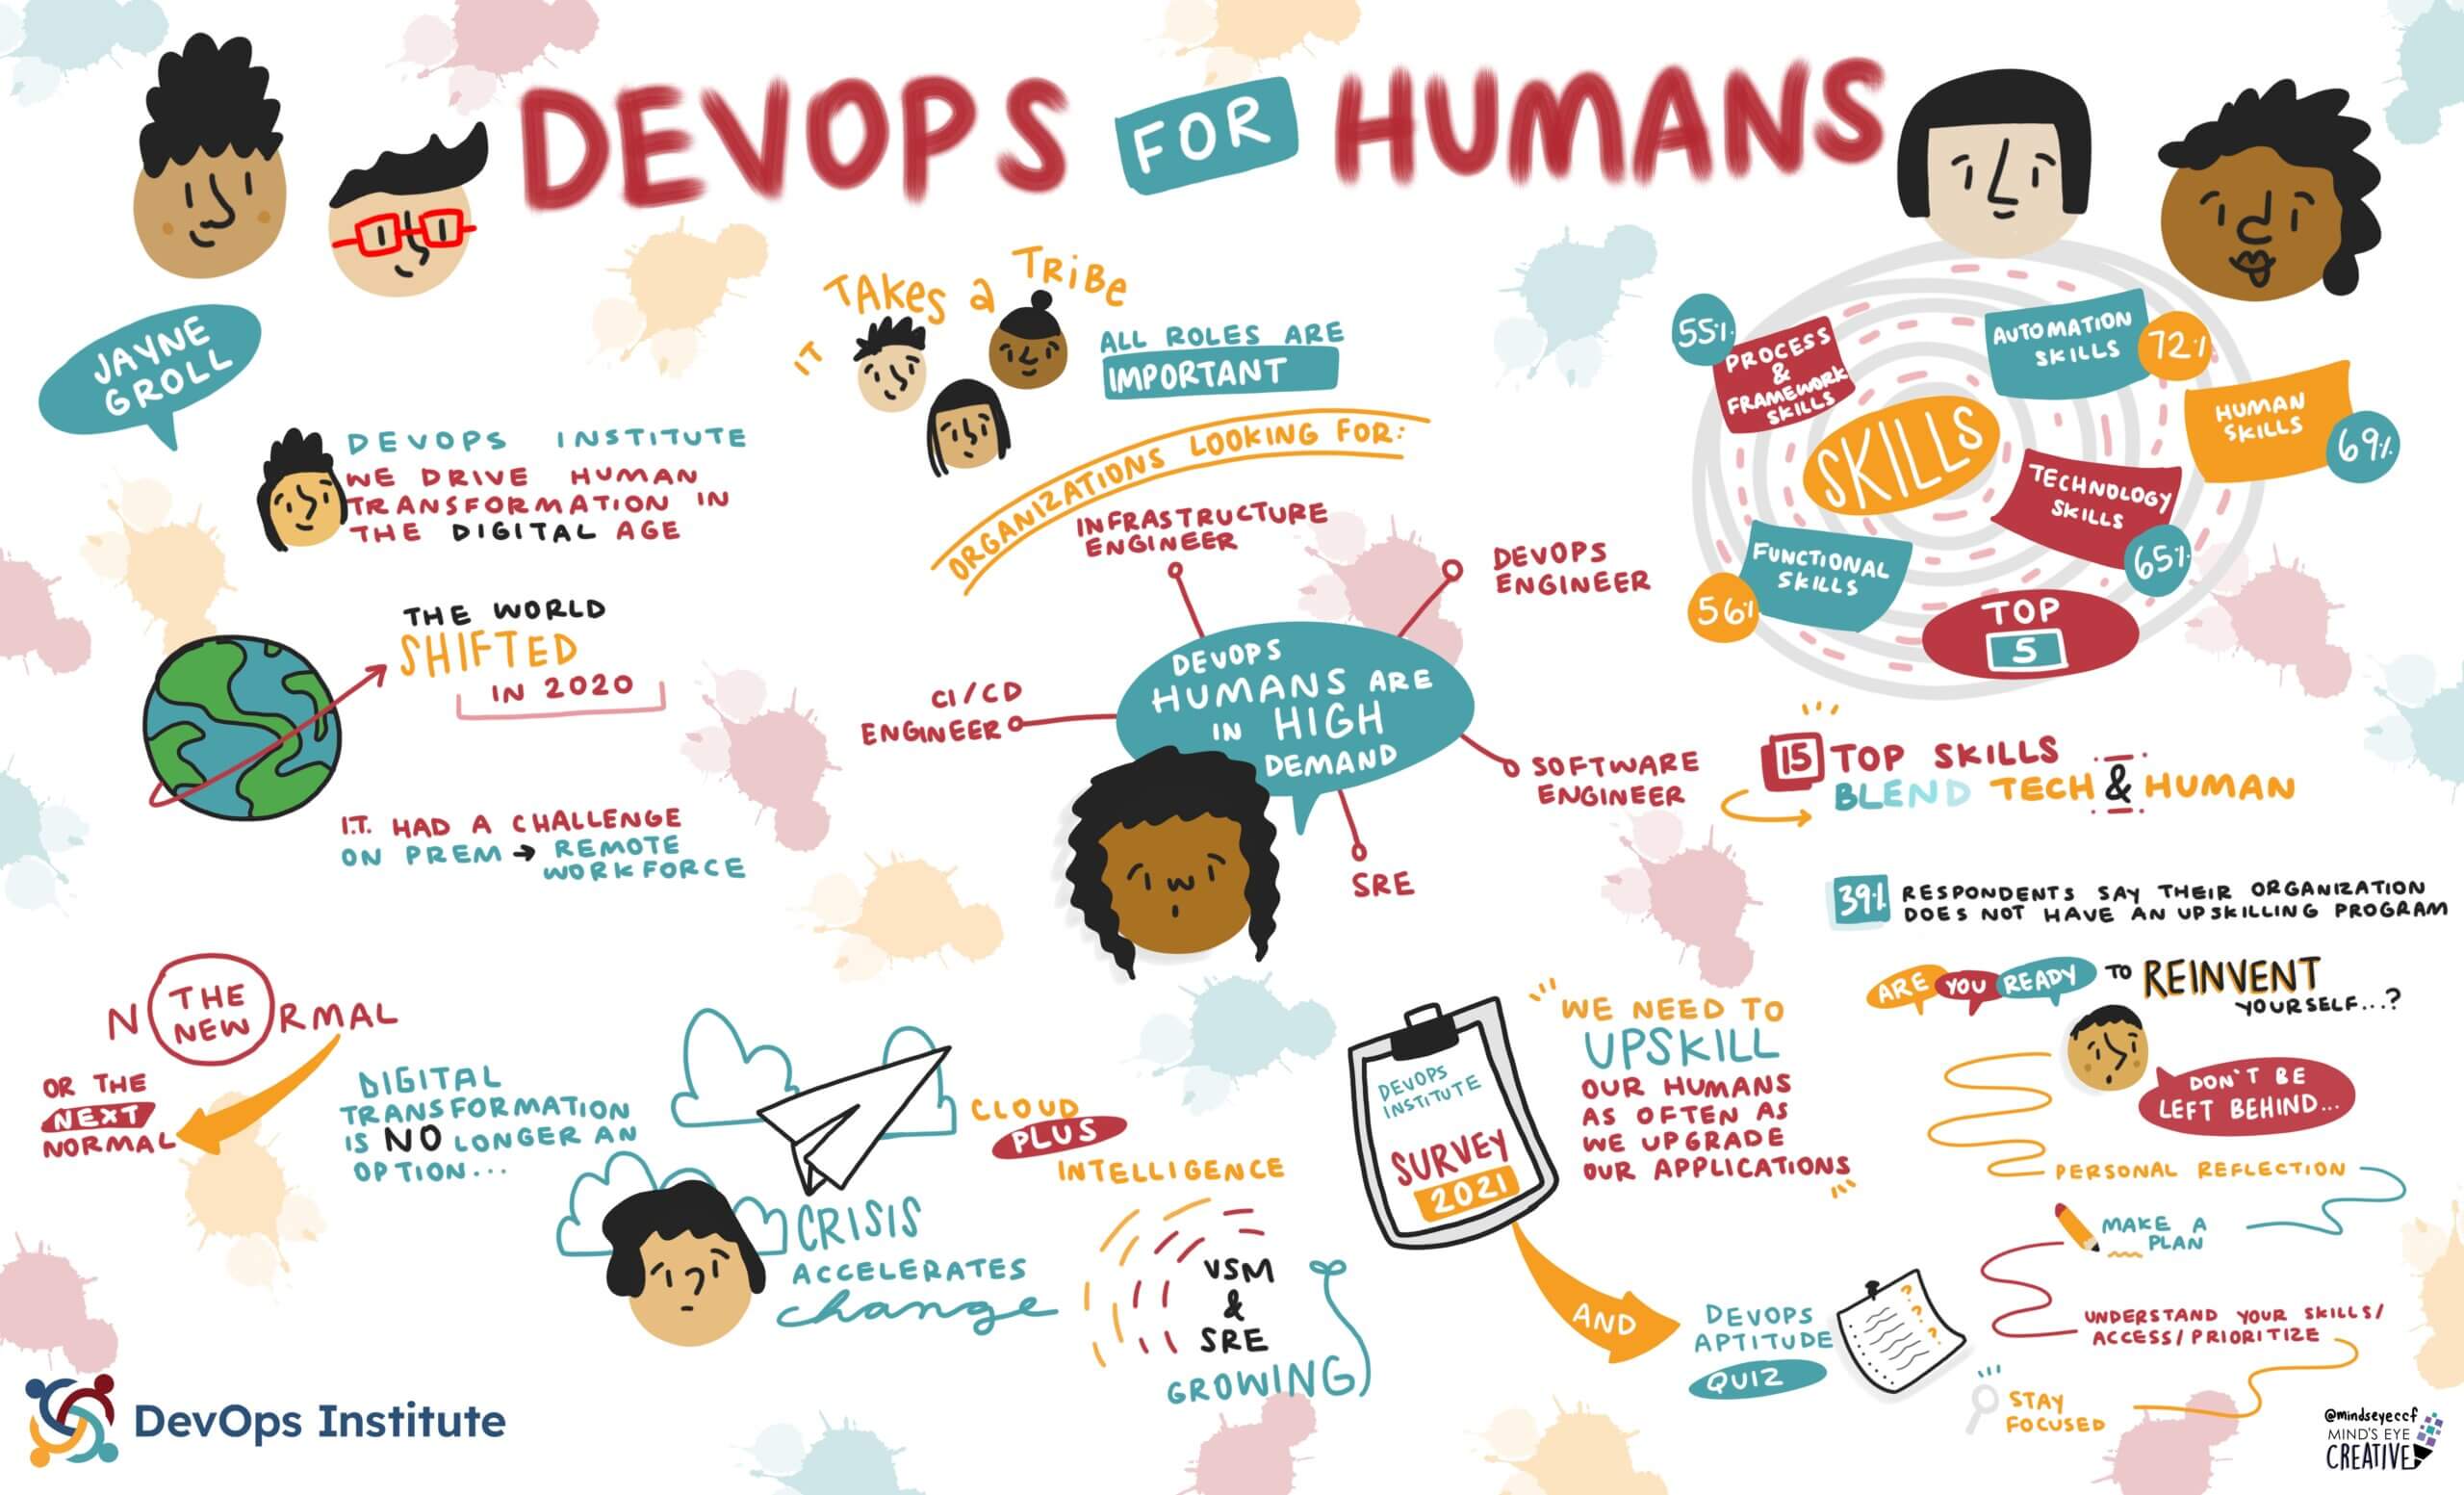 DEVOPS FOR HUMANS
JAYNE
GROLL
DEVOPS INSTITUTE
WE DRIVE HUMAN
TRANSFORMATION IN
THE DIGITAL AGE
THE WORLD
SHIFTED
IN 2020
I.T. HAD A CHALLENGE
ON PREM → REMOTE
WORKFORCE
N THE NEW RMAL
OR THE
NEXT
NORMAL
DIGITAL
TRANSFORMATION
IS NO LONGER AN
OPTION...
IT TAKES A TRIBE
ALL ROLES ARE
IMPORTANT
ORGANIZATIONS LOOKING FOR:
INFRASTRUCTURE
ENGINEER
DEVOPS
ENGINEER
CI/CD
ENGINEER
SOFTWARE
ENGINEER
SRE
DEVOPS
HUMANS ARE
IN HIGH
DEMAND
CRISIS
ACCELERATES
change
CLOUD
PLUS
INTELLIGENCE
VSM
&
SRE
GROWING
DEVOPS
INSTITUTE
SURVEY
2021
WE NEED TO
UPSKILL
OUR HUMANS
AS OFTEN AS
WE UPGRADE
OUR APPLICATIONS
AND
DEVOPS
APTITUDE
QUIZ
SKILLS
55%
PROCESS
&
FRAMEWORK
SKILLS
AUTOMATION
SKILLS
72%
HUMAN
SKILLS
69%
TECHNOLOGY
SKILLS
65%
FUNCTIONAL
SKILLS
56%
TOP
5
15 TOP SKILLS
BLEND TECH & HUMAN
39% RESPONDENTS SAY THEIR ORGANIZATION
DOES NOT HAVE AN UPSKILLING PROGRAM
ARE YOU READY TO REINVENT
YOURSELF...?
DON'T BE
LEFT BEHIND...
PERSONAL REFLECTION
MAKE A
PLAN
UNDERSTAND YOUR SKILLS/
ACCESS/PRIORITIZE
STAY
FOCUSED
DevOps Institute
@mindseyeccf
MIND'S EYE
CREATIVE